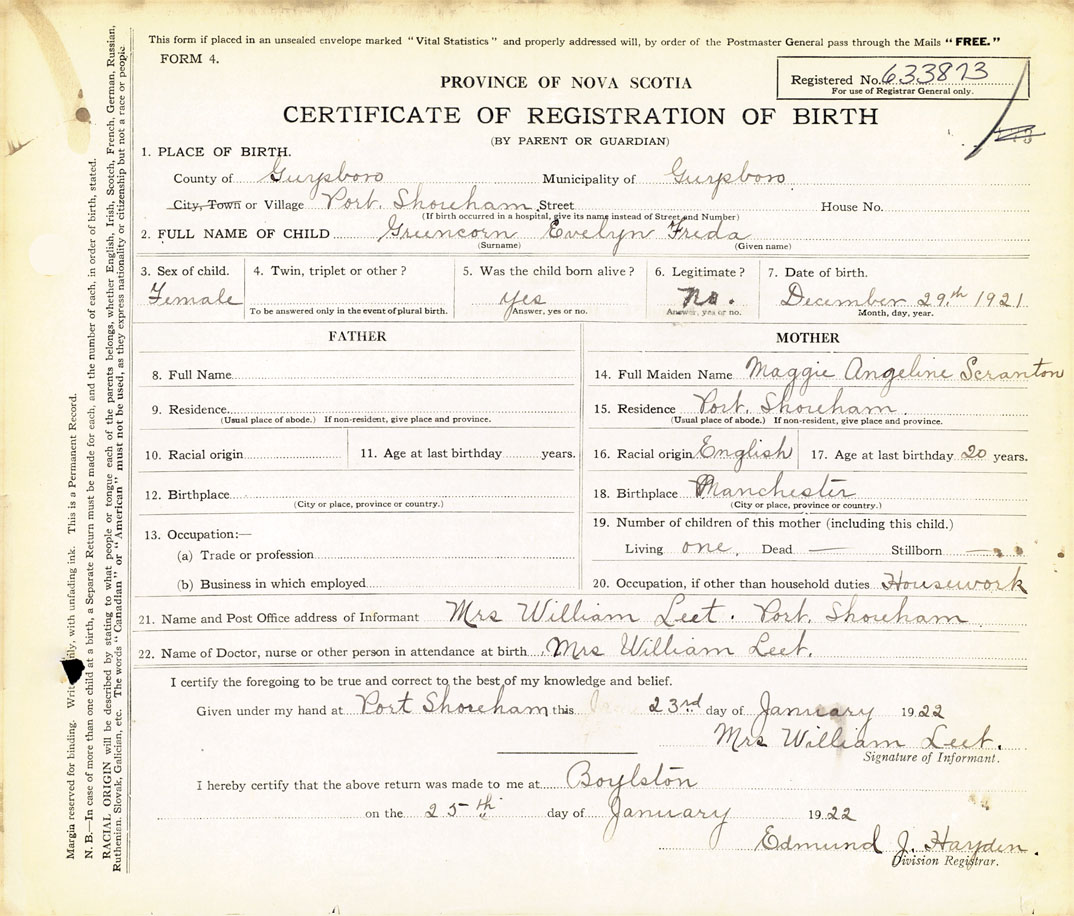 This form if placed in an unsealed envelope marked "Vital Statistics" and properly addressed will, by order of the Postmaster General pass through the Mails "FREE."
FORM 4.
Registered No. 633873
For use of Registrar General only.
PROVINCE OF NOVA SCOTIA
CERTIFICATE OF REGISTRATION OF BIRTH
(BY PARENT OR GUARDIAN)
1. PLACE OF BIRTH.
County of Guysboro Municipality of Guysboro
City, Town or Village Port. Shoreham Street House No.
(If birth occurred in a hospital, give its name instead of Street and Number)
2. FULL NAME OF CHILD Gruncorn Evelyn Freda
(Surname) (Given name)
3. Sex of child. 4. Twin, triplet or other? 5. Was the child born alive? 6. Legitimate? 7. Date of birth.
Female yes no. December 29.th 1921
To be answered only in the event of plural birth. Answer, yes or no. Answer, yes or no. Month, day, year.
FATHER
8. Full Name
9. Residence.
(Usual place of abode.) If non-resident, give place and province.
10. Racial origin 11. Age at last birthday years.
12. Birthplace
(City or place, province or country.)
13. Occupation:—
(a) Trade or profession
(b) Business in which employed
MOTHER
14. Full Maiden Name Maggie Angeline Scranton
15. Residence Port. Shoreham.
(Usual place of abode.) If non-resident, give place and province.
16. Racial origin English 17. Age at last birthday 20 years.
18. Birthplace Manchester
(City or place, province or country.)
19. Number of children of this mother (including this child.)
Living one. Dead — Stillborn —
20. Occupation, if other than household duties Housework
21. Name and Post Office address of Informant Mrs William Leet. Port. Shoreham.
22. Name of Doctor, nurse or other person in attendance at birth Mrs William Leet.
I certify the foregoing to be true and correct to the best of my knowledge and belief.
Given under my hand at Port Shoreham this 23rd day of January 1922
Mrs William Leet.
Signature of Informant.
I hereby certify that the above return was made to me at Boylston
on the 25th day of January 1922
Edmund J. Hayden.
Division Registrar.
Margin reserved for binding. Write only, with unfading ink. This is a Permanent Record.
N. B.—In case of more than one child at a birth, a Separate Return must be made for each, and the number of each, in order of birth, stated.
RACIAL ORIGIN will be described by stating to what people or tongue each of the parents belongs, whether English, Irish, Scotch, French, German, Russian,
Ruthenian, Slovak, Galician, etc. The words "Canadian" or "American" must not be used, as they express nationality or citizenship but not a race or people.